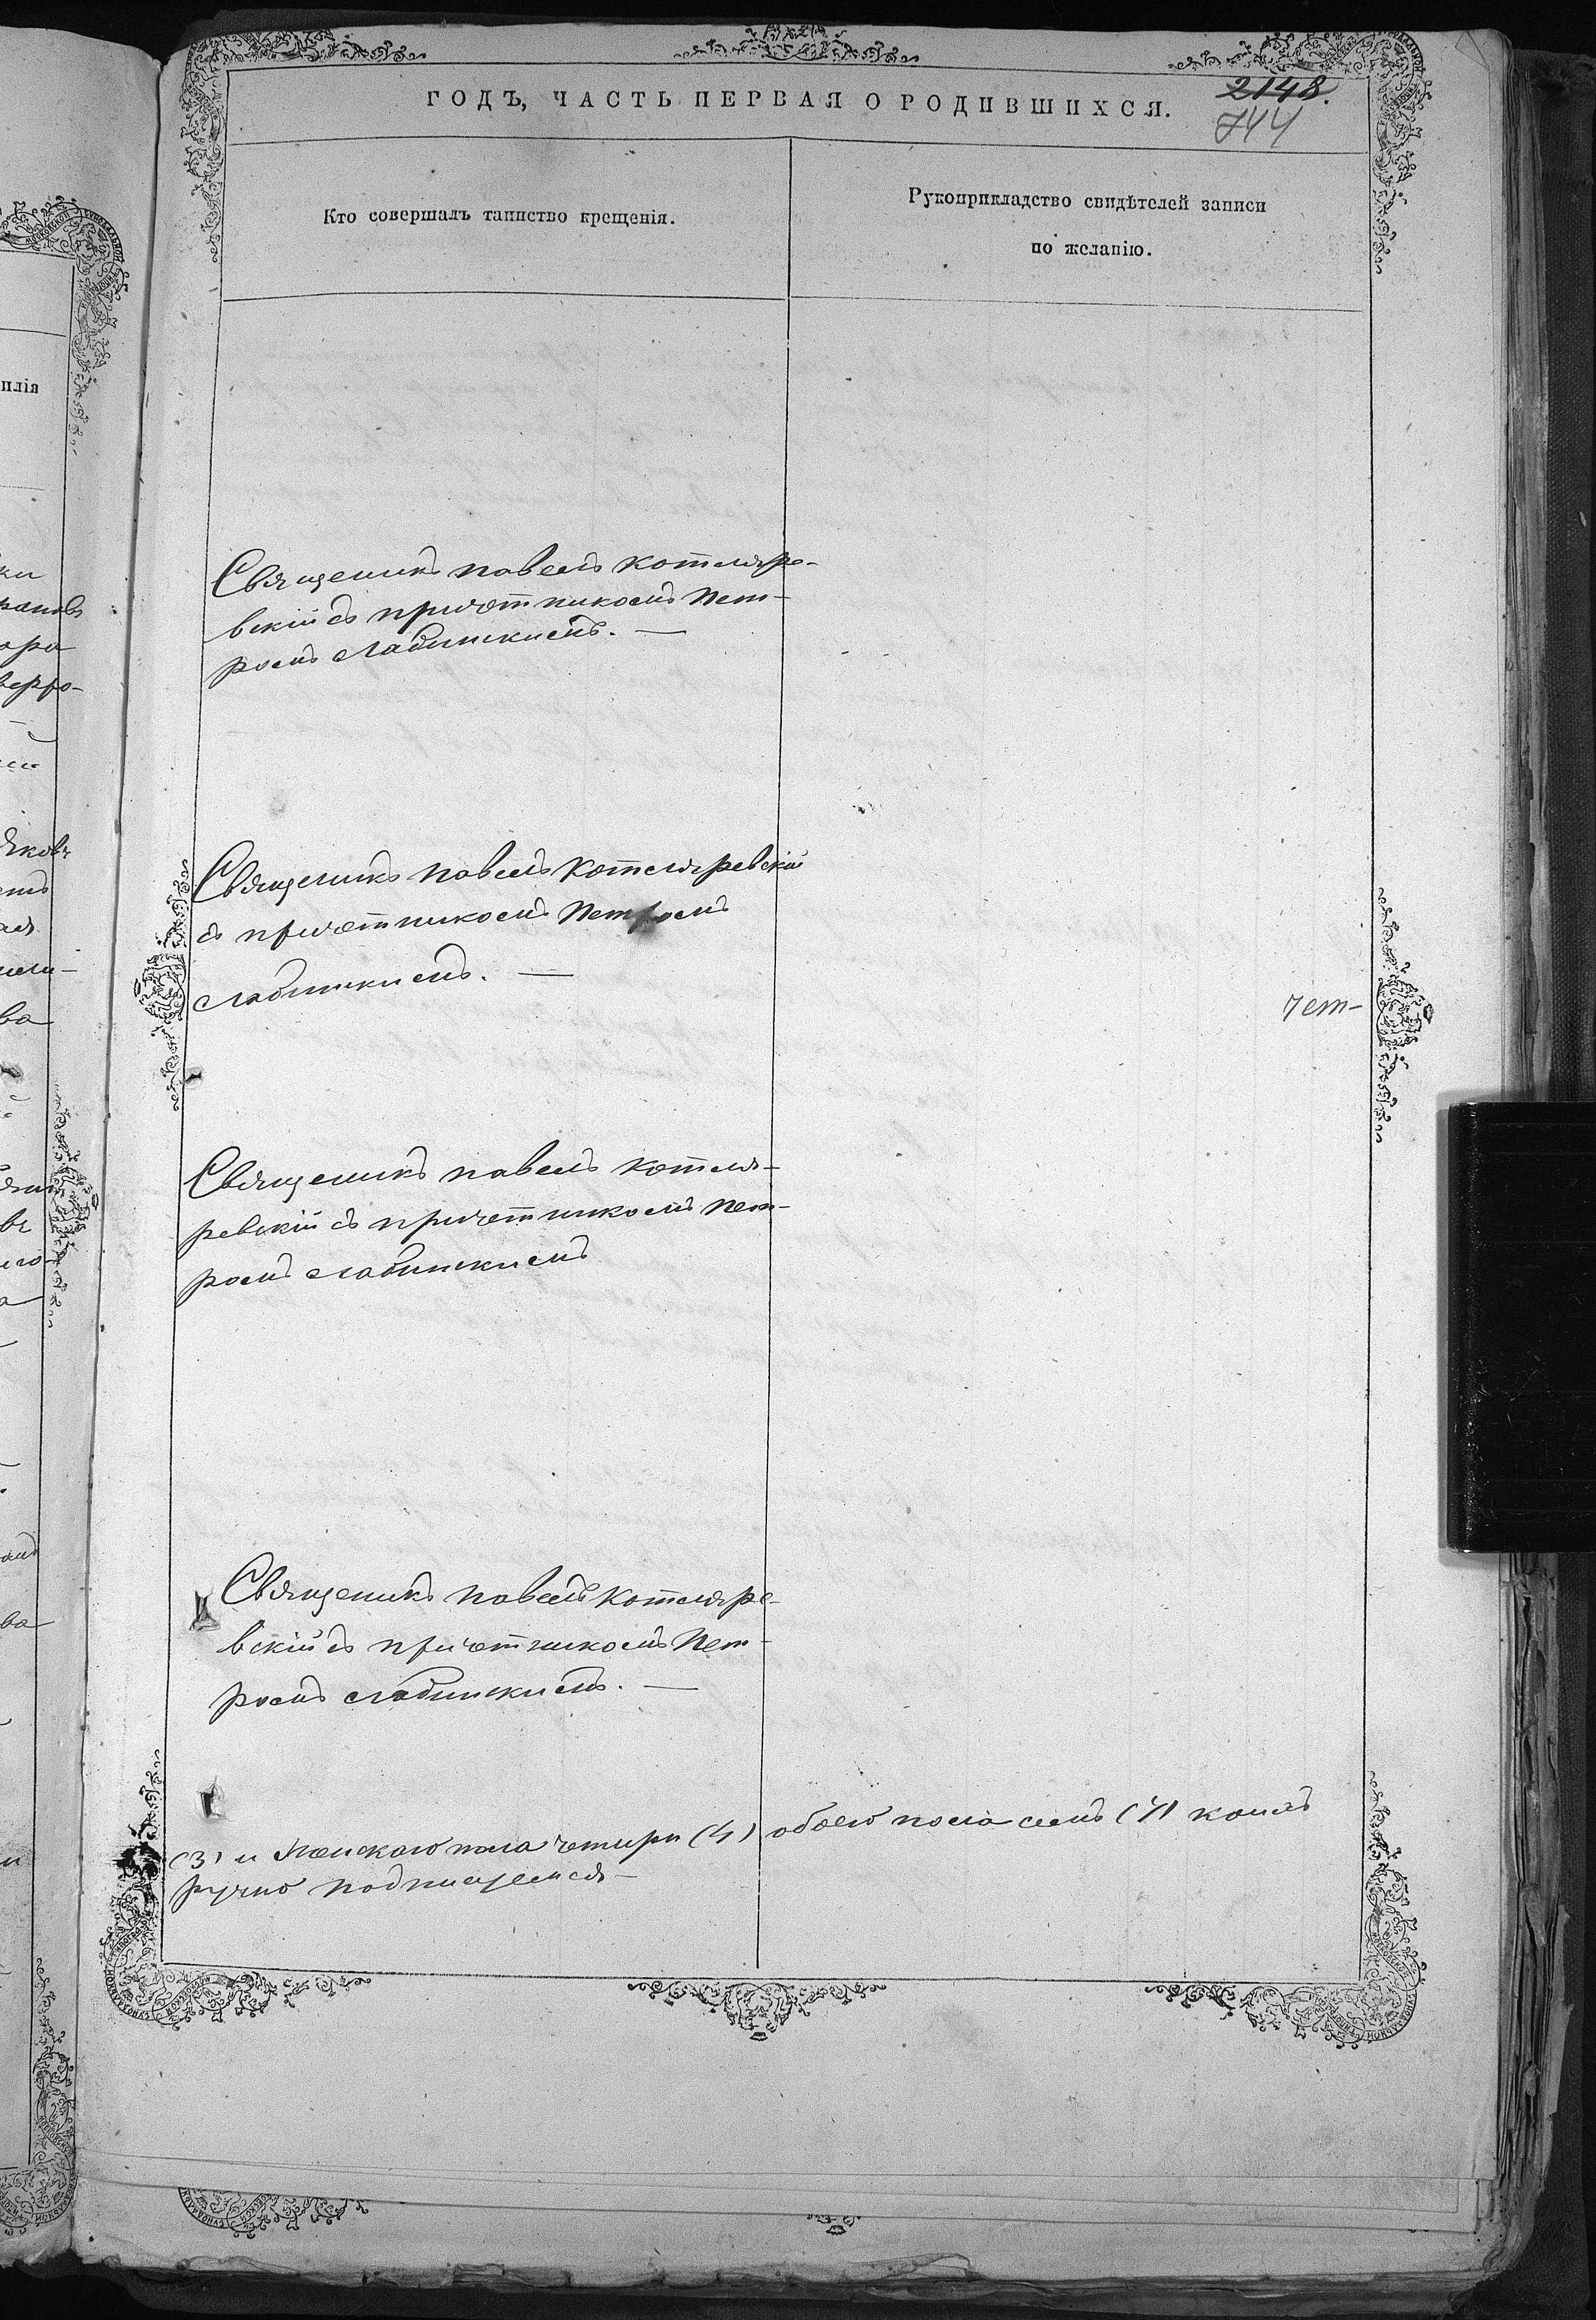 ГОДЪ, ЧАСТЬ ПЕРВАЯ О РОДИВШИХСЯ.
2148.
744
Кто совершалъ таинство крещенія.
Рукоприкладство свидѣтелей записи
по желанію.
Священикъ павелъ котляре-
вскій съ причетникомъ Пет-
ромъ Лабинскимъ. —
Священикъ павелъ Котляревскій
съ причетникомъ Петромъ
Лабинскимъ. —
чет-
Священикъ павелъ котля-
ревскій съ причетникомъ Пет-
ромъ Лабинскимъ
Священикъ павелъ Котляре-
вскій съ причетникомъ Пет-
ромъ Лабинскимъ. —
(3) и Женскаго пола четыри (4) обоего пола семь (7) коимъ
ручно подпишемся —